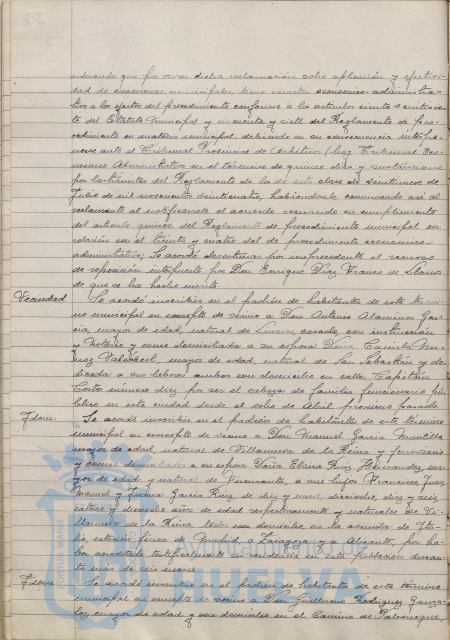 siderando que por versar dicha reclamación sobre aplicación y efectivi-
dad de exacciones municipales tiene carácter económico administra-
tivo a los efectos del procedimiento conforme a los artículos ciento
to del Estatuto Municipal y cincuenta y siete del Reglamento de pro-
cedimiento en materia municipal, debiendo en su consecuencia interpo-
nerse ante el Tribunal Provincial de Arbitrios (hoy Tribunal Eco-
nómico Administrativo) en el término de quince días y sustanciarse
por los trámites del Reglamento de los de esta clase de veintinueve de
Julio de mil novecientos veinticuatro, habiéndosele comunicado así al
reclamante al notificársele el acuerdo recurrido en cumplimiento
del artículo quince del Reglamento de procedimiento municipal en
relación con el treinta y cuatro del de procedimiento económico
administrativo; Se acordó desestimar por improcedente el recurso
de reposición interpuesto por Don Enrique Díaz Franco de Llanos
de que se ha hecho mérito.
Vecindad Se acordó inscribir en el padrón de habitantes de este térmi-
no municipal en concepto de vecino a Don Antonio Alaminos Gar-
cía, mayor de edad, natural de casado, con instrucción
y Notario y como domiciliada a su esposa Doña Camila
mayor de edad, natural de San Sebastián y de-
dicada a sus labores ambos con domicilio en calle Capitán
Cortés número diez por ser el cabeza de familia funcionario pú-
blico en esta ciudad desde el ocho de Abril próximo pasado.
Idem. Se acordó inscribir en el padrón de habitantes de este término
municipal en concepto de vecino a Don Manuel García Mantilla
mayor de edad, natural de Villanueva de la Reina y ferroviario
y como domiciliados a su esposa Doña Elvira Ruiz Hernández, ma-
yor de edad y natural de a sus hijos Francisco, Juan,
Manuel y Juana García Ruiz, de diez y nueve, dieciocho, diez y seis,
catorce y dieciocho años de edad respectivamente y naturales de Vi-
llanueva de la Reina, todos con domicilio en la avenida de Ita-
lia, estación férrea de Madrid, a Zaragoza y a Alicante, por ha-
ber acreditado testificalmente su residencia en esta población duran-
te más de seis meses.
Idem Se acordó inscribir en el padrón de habitantes de este término
municipal en concepto de vecino a Don Guillermo Rodríguez Gonzá-
lez mayor de edad y con domicilio en el Camino de
PORTUS MARIS
HUELVA